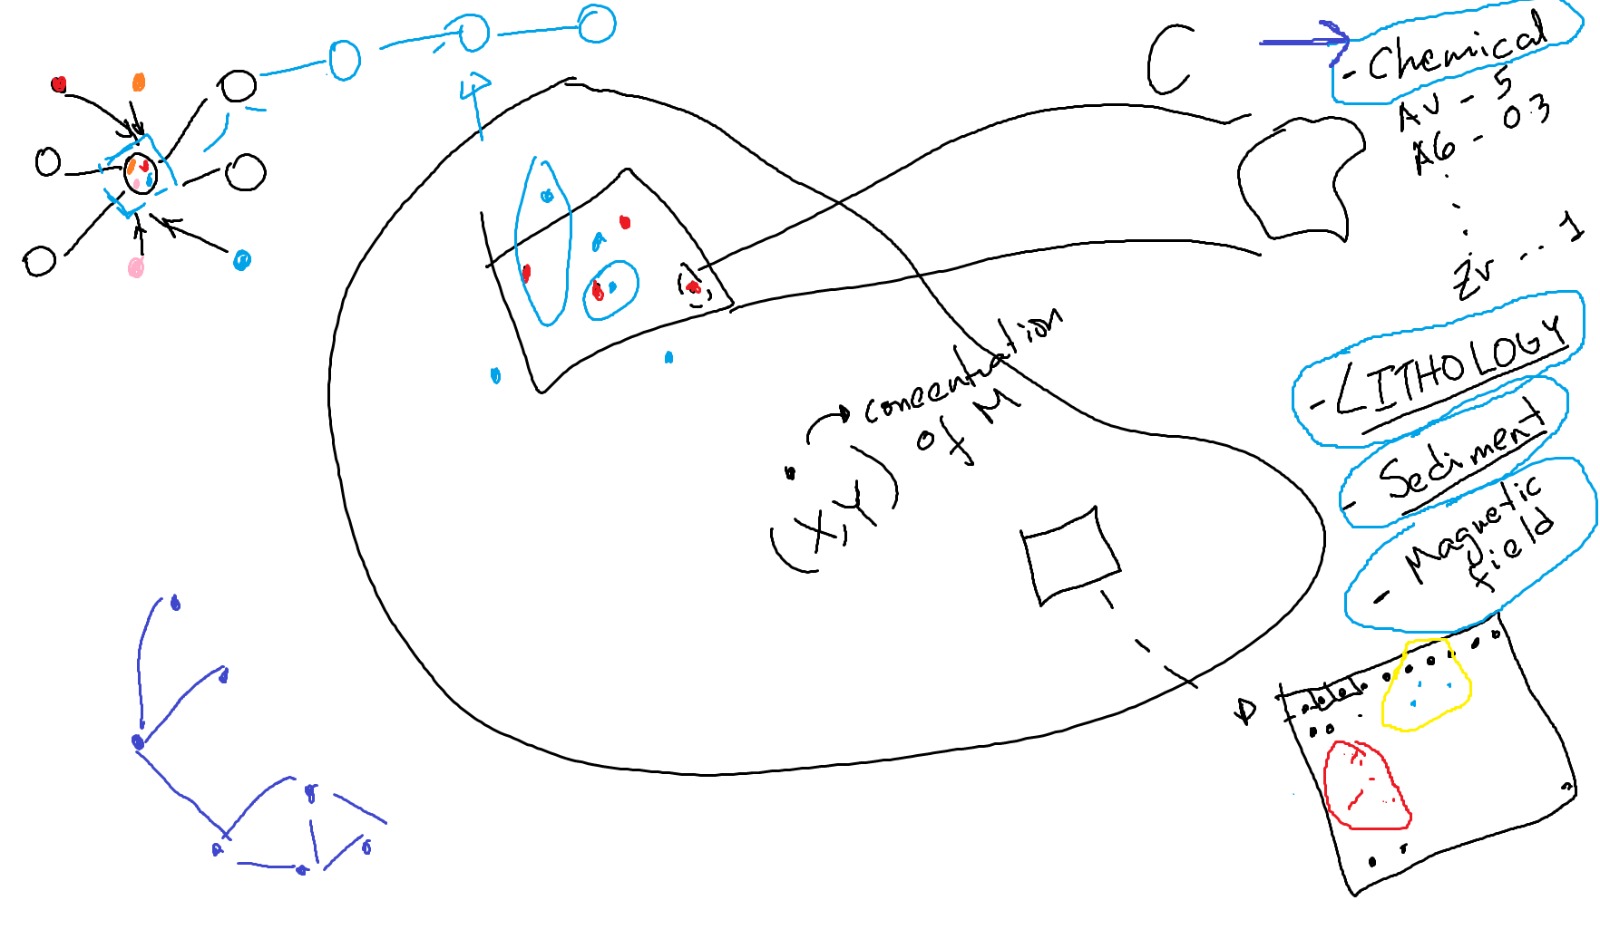 C
- Chemical
AU - 5
AG - 0.3
Zr -- 1
- LITHOLOGY
- Sediment
- Magnetic
field
concentration
of M
(X,Y)